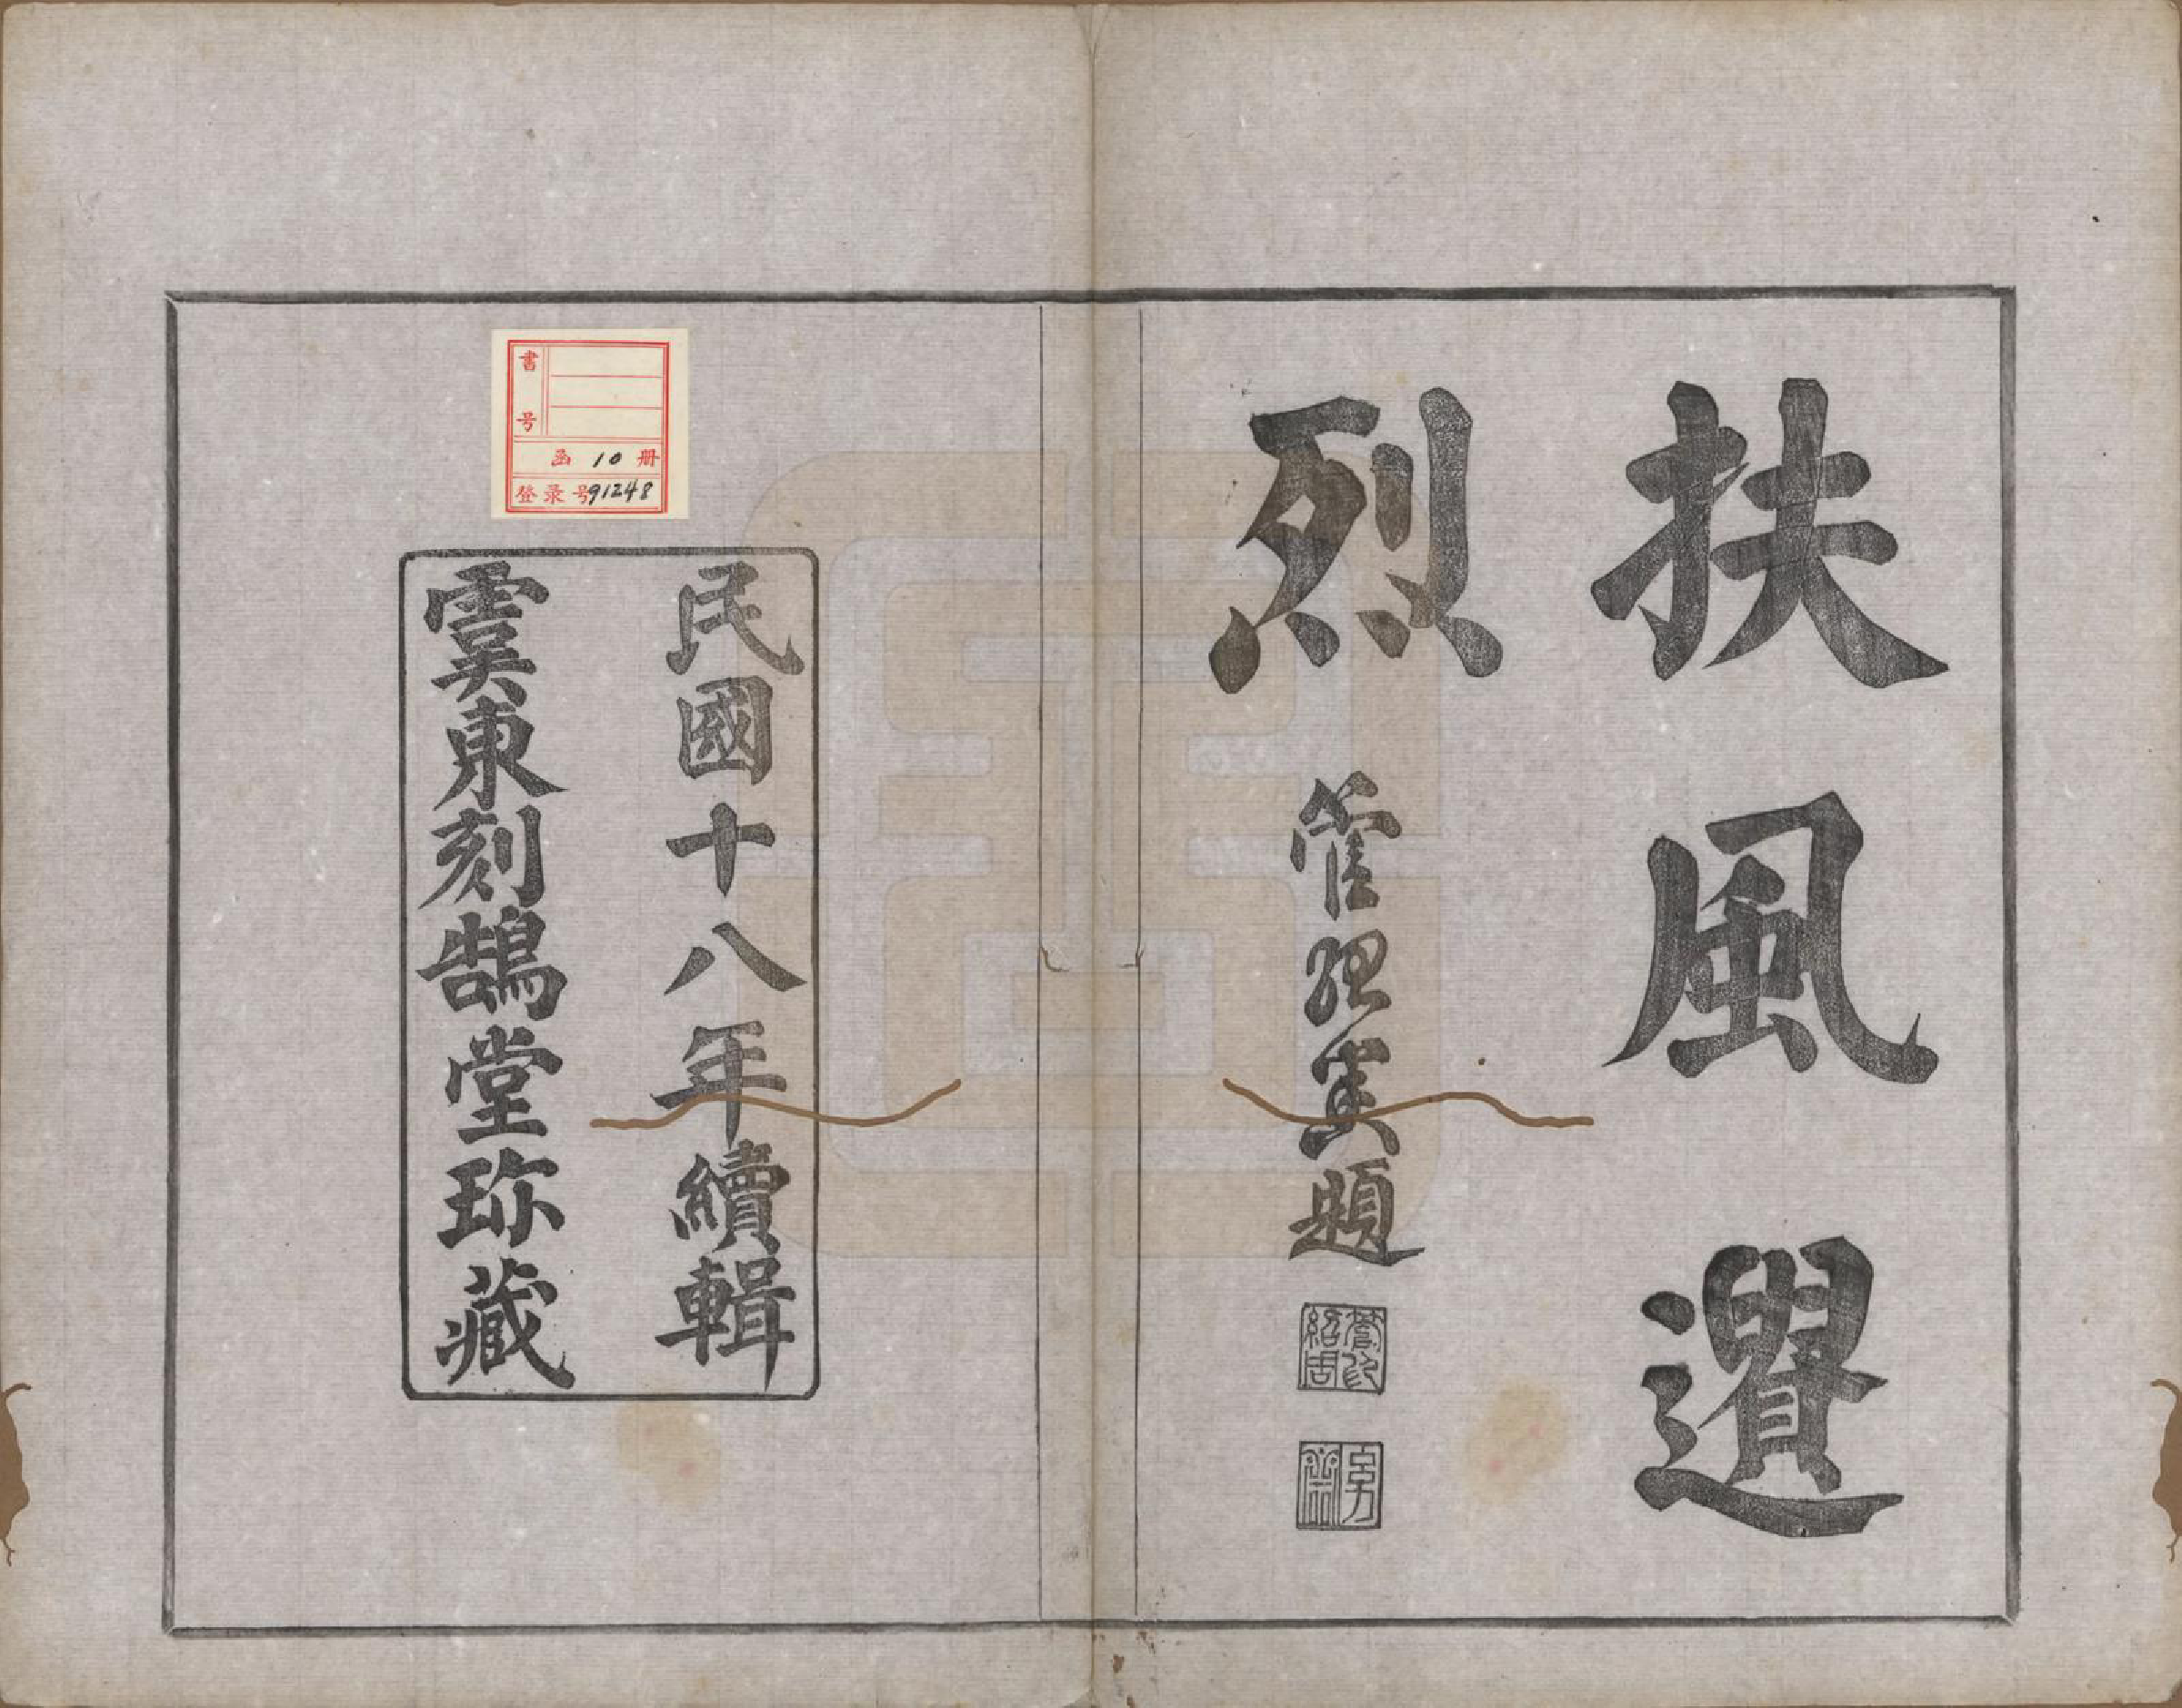 扶風遺
烈
題
民國十八年續輯
雩東刻鵠堂珎藏
書号
函 10 册
登录号91248